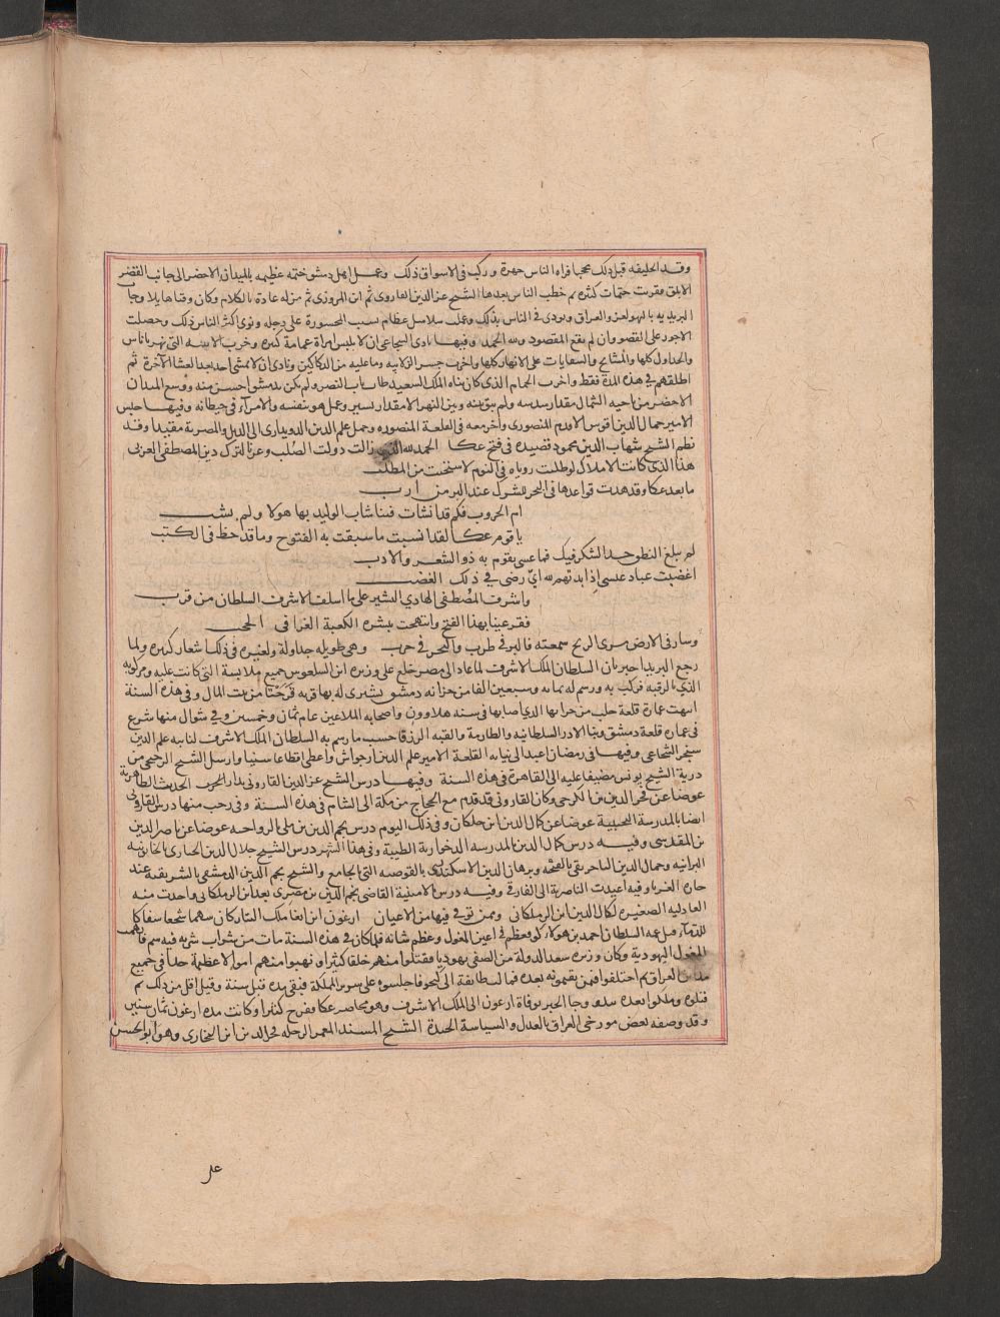 وقد الخليفه قبل ذلك فراه الناس جهرة وركب في الاسواق ذلك وعمل اهل دمشق ختمه عظيمه بالميدان الاخضر الى جانب القصر
الابلق فقريت ختمات كثيره ثم خطب الناس بعدها الشيخ عز الدين الفاروي ثم ابن البزوري ثم من له عادة بالكلام وجا
البريديه بالتهي لغزو العراق ونودي في الناس بذلك وعملت سلاسل عظام بسبب الجسورة على دجله ونوى اكثر الناس ذلك وحصلت
الاجور على القصد وان لم يقع المقصود ولله الحمد وفيها نادى الشجاعي ان لا يلبس امراة عمامة كبيره وخرب الابنيه التي على نهر باناس
والجداول كلها والمسالح والسقايات على الانهار كلها واخرب جسر الزلابيه وما عليه من الدكاكين ونادى ان لا يمشي احد بعد العشا الآخرة ثم
اطلقهم في هذه المدة فقط واخرب الحمام الذي كان بناه الملك السعيد ظاهر باب النصر ولم يكن بدمشق احسن منه ووسع الميدان
الاخضر من ناحيه الشمال مقدار سدسه ولم يبق بينه وبين النهر الا مقدار يسير وعمل هو بنفسه والامرآء في حيطانه وفيها حبس
الامير جمال الدين اقوش الافرم المنصوري واخر معه في القلعة المنصوره وحمل علم الدين الدويداري الى الديار المصرية مقيدا وقد
نظم الشيخ شهاب الدين محمود قصيده في فتح عكا الحمد لله زالت دولت الصلب وعز بالترك دين المصطفى العربي
هذا الذي كانت الامال لو طلبت روياه في النوم لاستحيت من الطلب
ما بعد عكا وقد هدت قواعدها في البحر للشرك عند البر من ارب
ام الحروب فكم قد انشات فتنا شاب الوليد بها هولا ولم يشب
يا قوم عكا لقد انسيت ما سبقت به الفتوح وما قد خط في الكتب
لم يبلغ النطق حد الشكر فيك فما عسى يقوم به ذو الشعر والادب
اغضبت عباد عيسى اذ ابدتهم لله اي رضى في ذلك الغضب
واشرف المصطفى الهادي البشير على ما اسلف الاشرف السلطان من قرب
فقر عينا بهذا الفتح وابتهجت ببشره الكعبة الغرا في الحجب
وسار في الارض سرى الريح سمعته فالبر في طرب والبحر في حرب وهي طويله جدا وله ولغيره في ذلك اشعار كثيره ولما
رجع البريد اخبر بان السلطان الملك الاشرف لما عاد الى مصر خلع على وزيره ابن السلعوس جميع ملابسة التي كانت عليه ومركوبه
الذي بالرقبه فركب به ورسم له بثمانيه وسبعين الفا من خزانه دمشق يشترى له بها قريه قرحتا من بيت المال وفي هذه السنة
انتهت عمارة قلعة حلب من خرابها الذي اصابها في سنه هلاوون واصحابه الملاعين عام ثمان وخمسين وفي شوال منها شرع
في عماره قلعة دمشق وبنا الادر السلطانيه والطارمة والقبه الزرقا حسب ما رسم به السلطان الملك الاشرف لنايبه علم الدين
سنجر الشجاعي وفيها في رمضان اعيد الى نيابه القلعة الامير علم الدين ارجواش واعطي اقطاعا سنيا وارسل الشيخ الرجيحي من
درية الشيخ يونس مضيقا عليه الى القاهرة في هذه السنة وفيها درس الشيخ عز الدين الفاروثي بدار الحديث الظاهرية
عوضا عن فخر الدين بن الكرجي وكان الفاروثي قد قدم مع الحجاج من مكة الى الشام في هذه السنة وفي رجب منها درس الفاروثي
ايضا بالمدرسة النجيبية عوضا عن كمال الدين ابن خلكان وفي ذلك اليوم درس نجم الدين بن ملى بالرواحيه عوضا عن ناصر الدين
بن المقدسي وفيه درس كمال الدين بالمدرسه الدخوارية الطبية وفي هذا الشهر درس الشيخ جلال الدين الخبازي بالخاتونيه
البرانيه وجمال الدين الباجربقي بالفتحيه وبرهان الدين الاسكندري بالقوصيه التي بالجامع والشيخ نجم الدين الدمشقي بالشريفيه عند
حارة الغربا وفيه اعيدت الناصرية الى الفارقي وفيه درس بالامينية القاضي نجم الدين بن صصرى بعد ابن الزملكاني واخذت منه
العادليه الصغيره لكمال الدين ابن الزملكاني وممن توفي فيها من الاعيان ارغون ابن ابغا ملك التتار كان شهما شجاعا سفاكا
للدمآء قتل عمه السلطان احمد بن هولاكو فعظم في اعين المغول وعظم شانه فلما كان في هذه السنة مات من شراب شربه فيه سم فاتهمت
المغول اليهود به وكان وزيره سعد الدولة بن الصفي يهوديا فقتلوا منهم خلقا كثيرا ونهبوا منهم اموالا عظيمة جدا في جميع
مداين العراق ثم اختلفوا فمن يقيمونه بعده فمالت طايفة الى كيختو فاجلسوه على سرير المملكة فبقي مده قيل سنة وقيل اقل من ذلك ثم
قتلوه وملكوا بعده بيدو وجا الخبر بوفاة ارغون الى الملك الاشرف وهو محاصر عكا ففرح كثيرا وكانت مده ارغون ثمان سنين
وقد وصفه بعض مورخي العراق بالعدل والسياسة الجيدة الشيخ المسند المعمر الرحله فخر الدين ابن البخاري وهو ابو الحسن
على